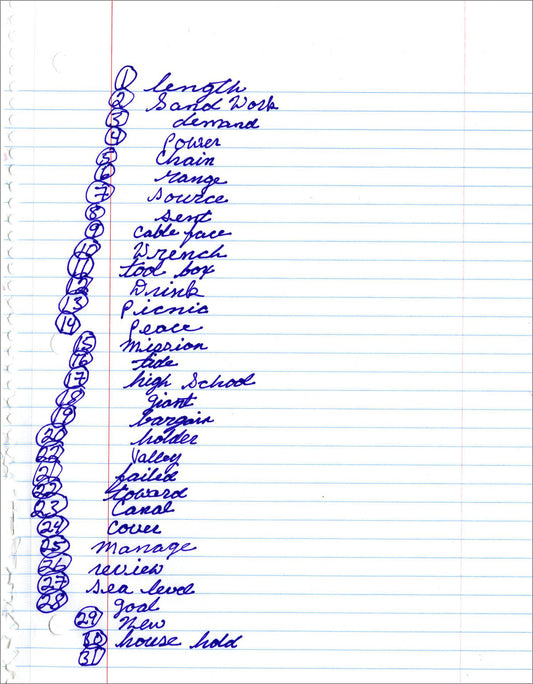 1 length
2 Sand Work
3 demand
4 Power
5 Chain
6 range
7 source
8 sent
9 cable face
10 Wrench
11 tool box
12 Drink
13 Picnic
14 Peace
15 Mission
16 tide
17 high School
18 giant
19 bargain
20 holder
22 Valley
21 failed
22 toward
23 Canal
24 cover
25 manage
26 review
27 sea level
28 goal
29 New
30 house hold
31